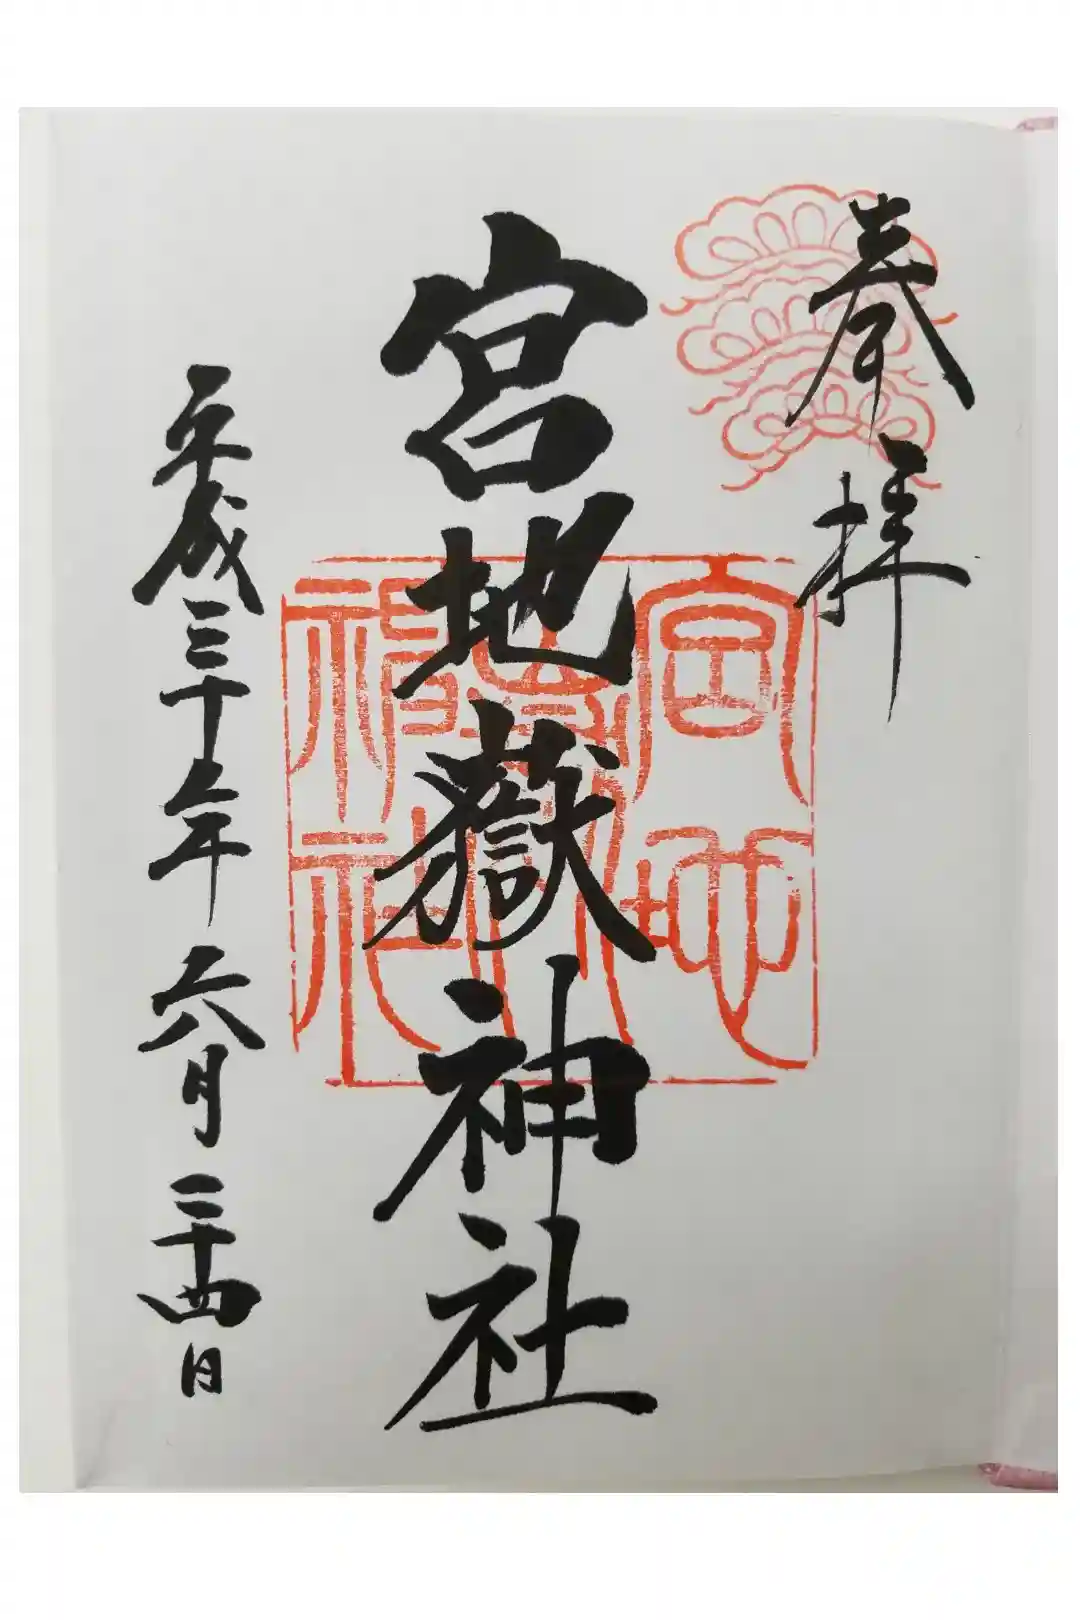 奉拝
宮地嶽神社
平成三十年六月二十四日
宮地
嶽
神社